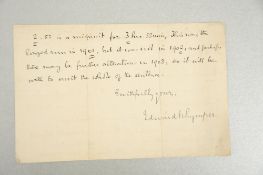 2.55 is a misprint for 3 hrs. 55 min. This was the
longest run in 1901, but it was not in 1902; and perhaps
there may be further alteration in 1903, so it will be
well to omit the whole of the sentence.
Faithfully yours,
Edward Whymper